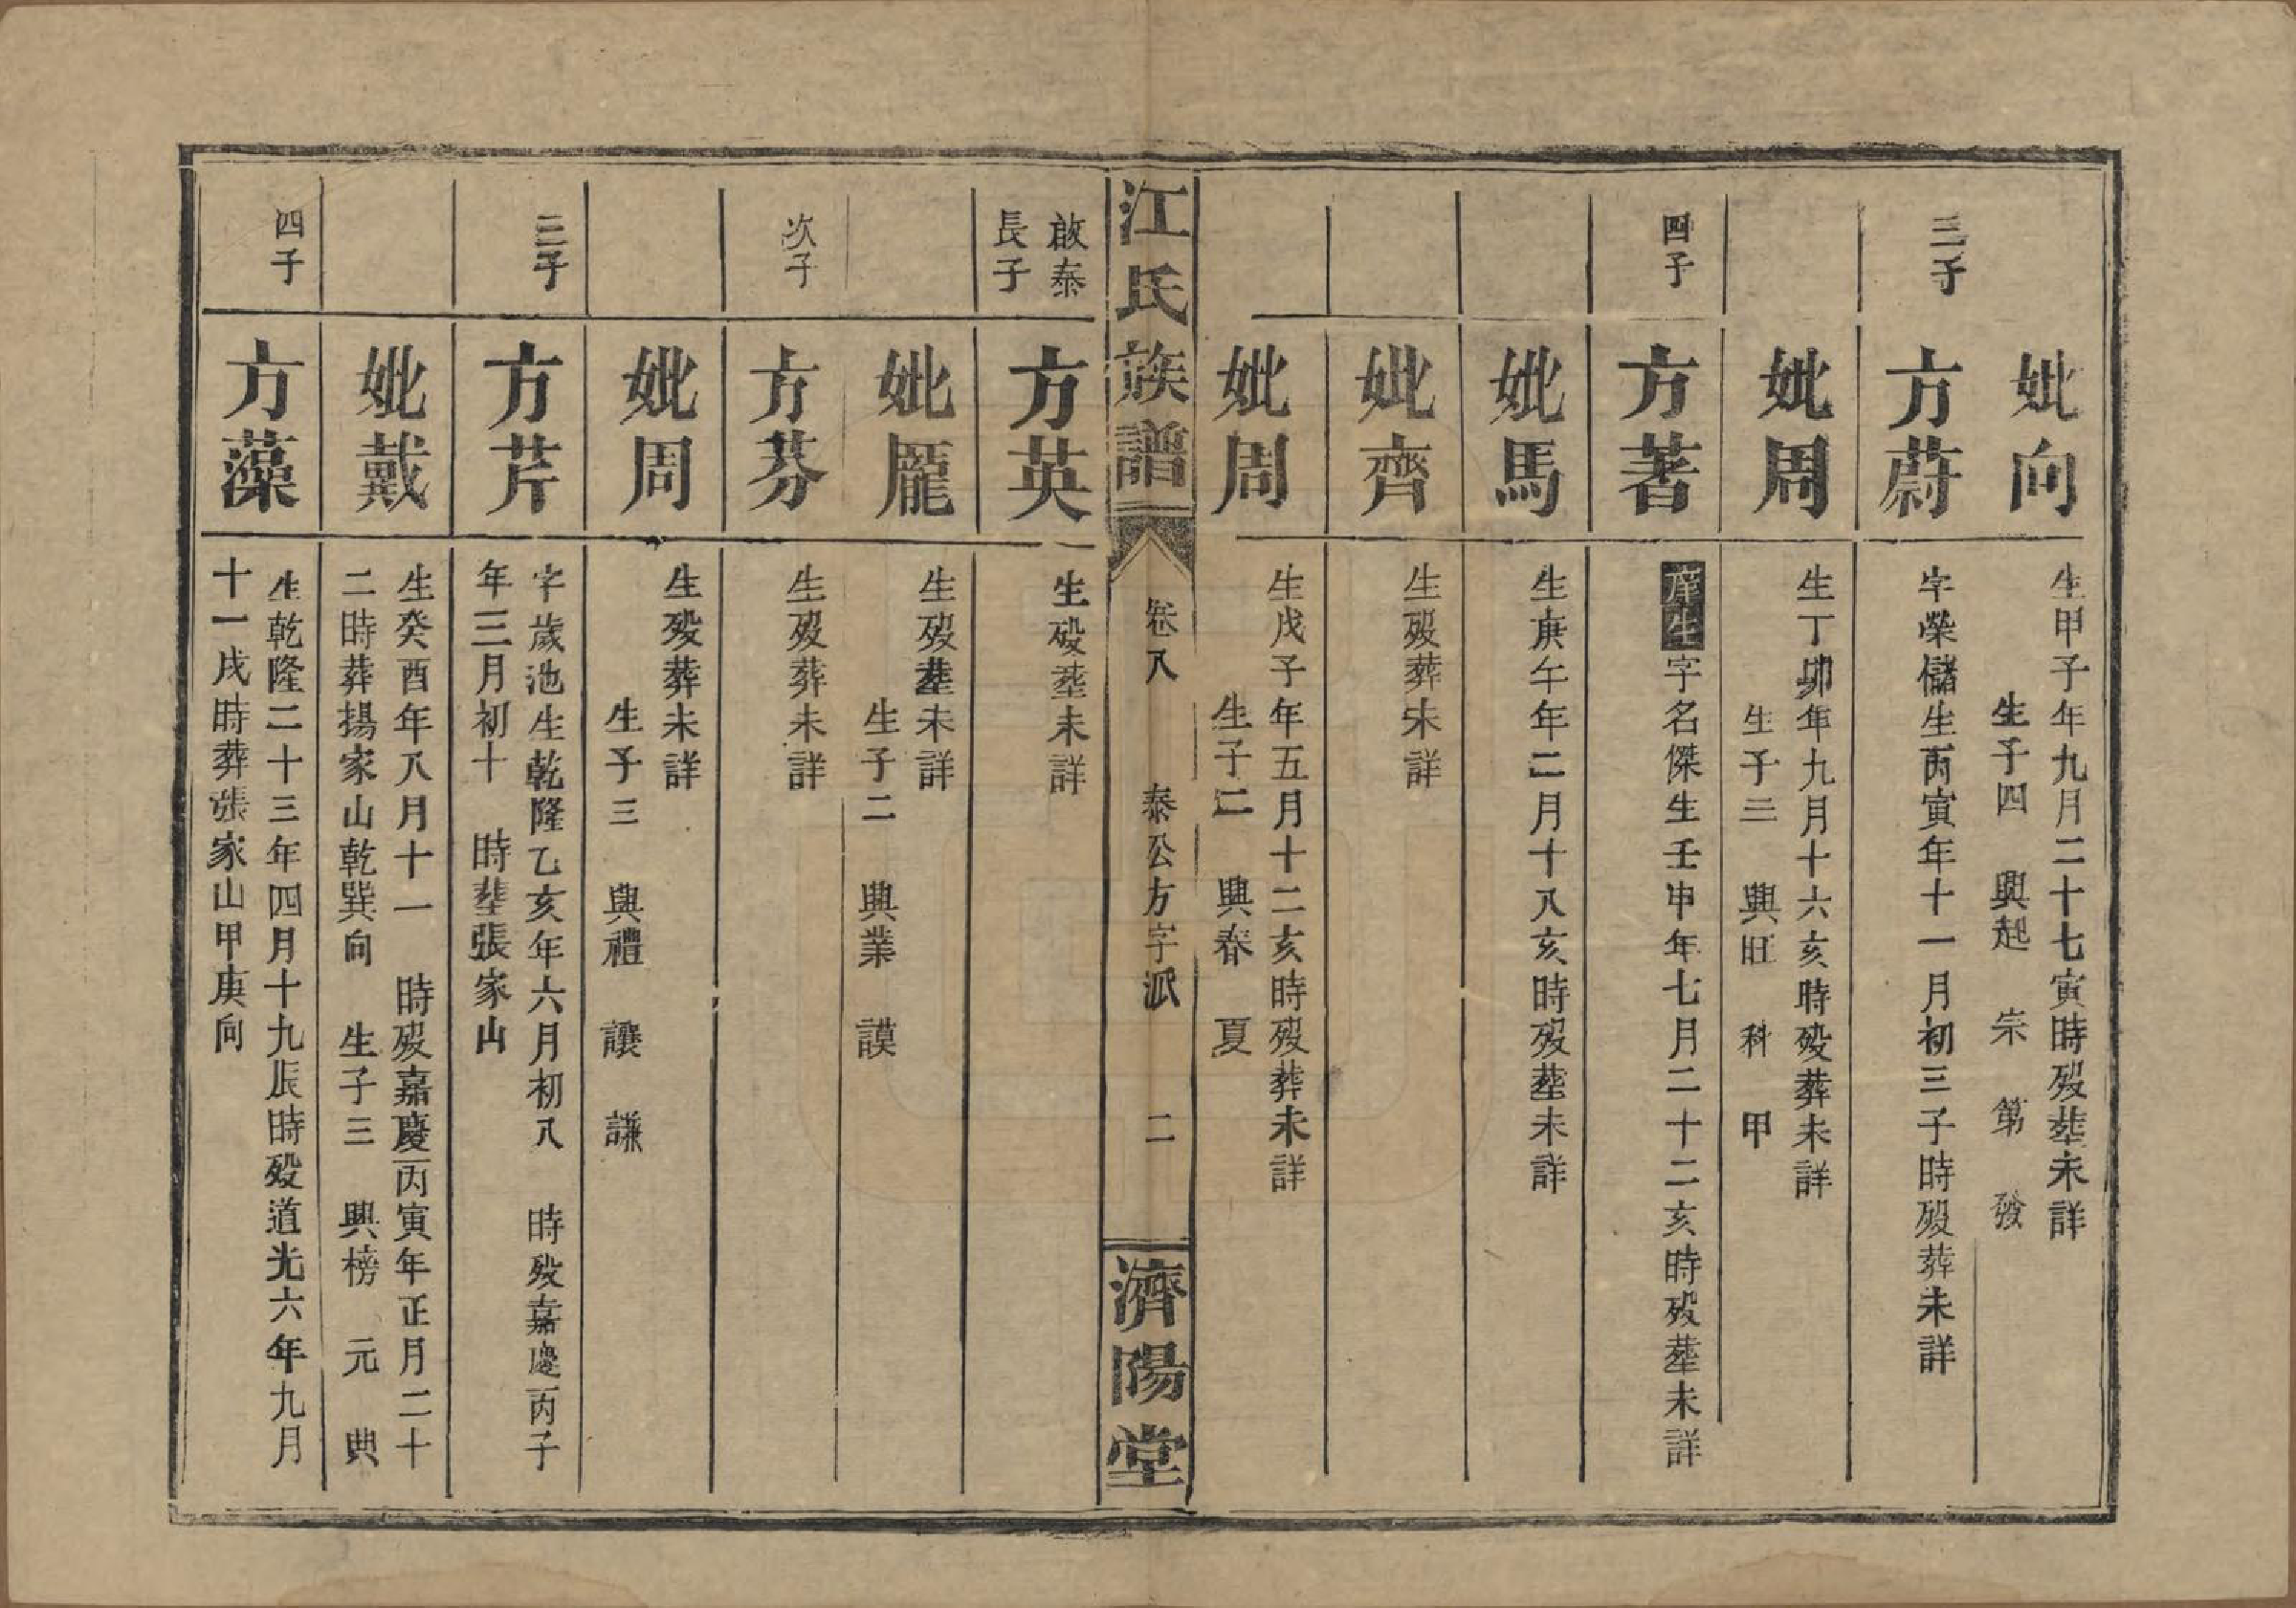 妣向
生甲子年九月二十七寅時歿塟未詳
生子四　興起　宗　第　發
三子
方蔚
字榮儲生丙寅年十一月初三子時歿葬未詳
妣周
生丁卯年九月十六亥時歿葬未詳
生子三　興旺　科　甲
四子
方著
庠生字名傑生壬申年七月二十二亥時歿塟未詳
妣馬
生庚午年二月十八亥時歿塟未詳
妣齊
生歿葬未詳
妣周
生戊子年五月十二亥時歿葬未詳
生子二　興春　夏
江氏族譜
卷八　泰公方字派　二
濟陽堂
啟泰
長子
方英
生歿塟未詳
妣龎
生歿塟未詳
生子二　興業　謨
次子
方芬
生歿葬未詳
妣周
生歿葬未詳
生子三　興禮　讓　謙
三子
方芹
字歲池生乾隆乙亥年六月初八　時歿嘉慶丙子
年三月初十　時塟張家山
妣戴
生癸酉年八月十一　時歿嘉慶丙寅年正月二十
二時葬揚家山乾巽向　生子三　興榜　元　典
四子
方藻
生乾隆二十三年四月十九辰時歿道光六年九月
十一戌時葬張家山甲庚向